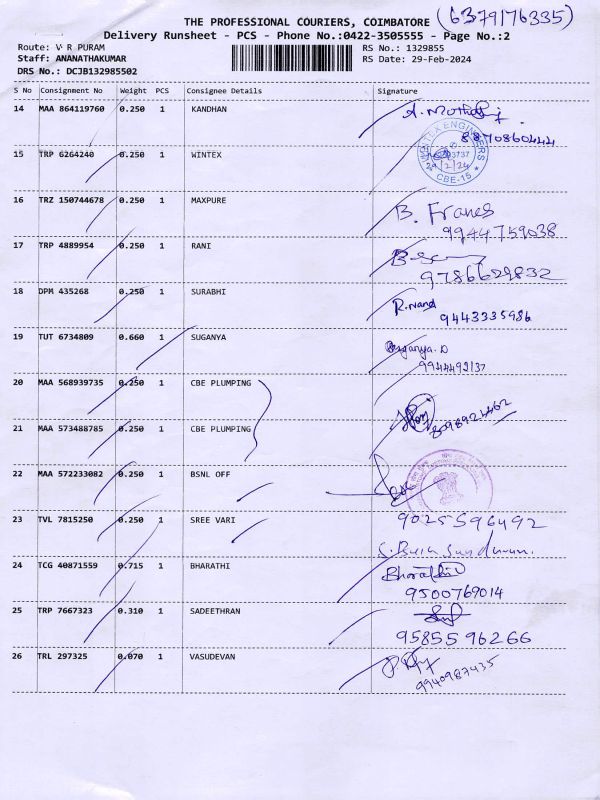 THE PROFESSIONAL COURIERS, COIMBATORE (6379176335)
Delivery Runsheet - PCS - Phone No.:0422-3505555 - Page No.:2
Route: V R PURAM RS No.: 1329855
Staff: ANANATHAKUMAR RS Date: 29-Feb-2024
DRS No.: DCJB132985502
S No Consignment No Weight PCS Consignee Details Signature
14 MAA 864119760 0.250 1 KANDHAN
8870860444
15 TRP 6264240 0.250 1 WINTEX
ENGINEERS CBE-15
16 TRZ 150744678 0.250 1 MAXPURE B. Franes
9944759038
17 TRP 4889954 0.250 1 RANI
9786629832
18 DPM 435268 0.250 1 SURABHI R. Nand
9443335986
19 TUT 6734809 0.660 1 SUGANYA Suganya. D
9944492137
20 MAA 568939735 0.250 1 CBE PLUMPING
8098921462
21 MAA 573488785 0.250 1 CBE PLUMPING
22 MAA 572233082 0.250 1 BSNL OFF
23 TVL 7815250 0.250 1 SREE VARI 9025596492
24 TCG 40871559 0.715 1 BHARATHI Bharathi
9500769014
25 TRP 7667323 0.310 1 SADEETHRAN
9585596266
26 TRL 297325 0.070 1 VASUDEVAN
9940987435